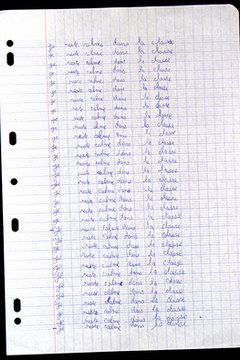 je reste calme dans la classe
je reste calme dans la classe
je reste calme dans la classe
je reste calme dans la classe
je reste calme dans la classe
je reste calme dans la classe
je reste calme dans la classe
je reste calme dans la classe
je reste calme dans la classe
je reste calme dans la classe
je reste calme dans la classe
je reste calme dans la classe
je reste calme dans la classe
je reste calme dans la classe
je reste calme dans la classe
je reste calme dans la classe
je reste calme dans la classe
je reste calme dans la classe
je reste calme dans la classe
je reste calme dans la classe
je reste calme dans la classe
je reste calme dans la classe
je reste calme dans la classe
je reste calme dans la classe
je reste calme dans la classe
je reste calme dans la classe
je reste calme dans la classe
je reste calme dans la classe
je reste calme dans la classe
je reste calme dans la classe
je reste calme dans la classe
je reste calme dans la classe
je reste calme dans la classe
je reste calme dans la classe
je reste calme dans la classe
je reste calme dans la classe